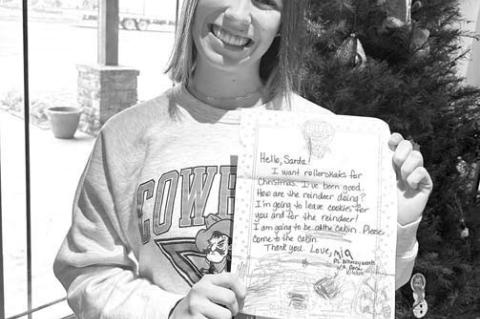 COWB
Hello, Santa!
I want rollerskates for
Christmas. I've been good.
How are the reindeer doing?
I'm going to leave cookies for
you and for the reindeer!
I am going to be at the cabin. Please
come to the cabin.
Thank you. Love,